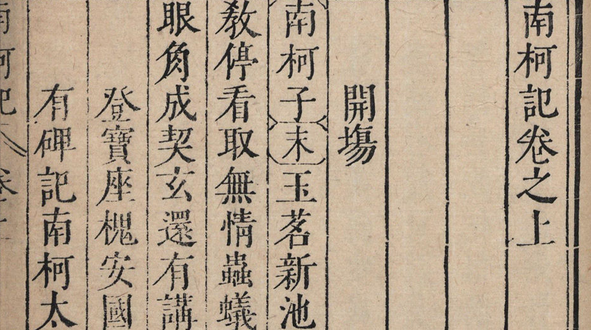 南柯記卷之上
開塲
南柯子末玉茗新池
敎停看取無情蟲蟻
眼角成契玄還有講
登寶座槐安國
有碑記南柯太
南柯記卷上